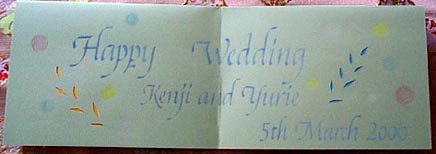 Happy Wedding
Kenji and Yurie
5th March 2006